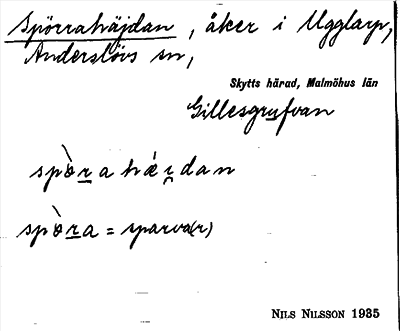 Spörrahäjdan, åker i Ugglarp,
Anderslövs sn,
Skytts härad, Malmöhus län
Gillesgrufvan
spòra hę́i̯dan
spòra = sparva(r)
NILS NILSSON 1935